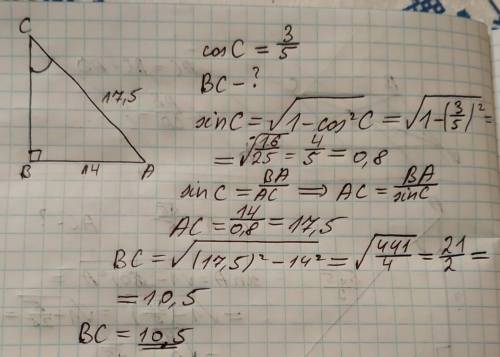 C
17,5
B
14
A
cos C = 3/5
BC - ?
sin C = √(1-cos²C) = √(1-(3/5)²) =
= √(16/25) = 4/5 = 0,8
sin C = BA/AC ⟹ AC = BA/sinC
AC = 14/0,8 = 17,5
BC = √((17,5)²-14²) = √(441/4) = 21/2 =
= 10,5
BC = 10,5